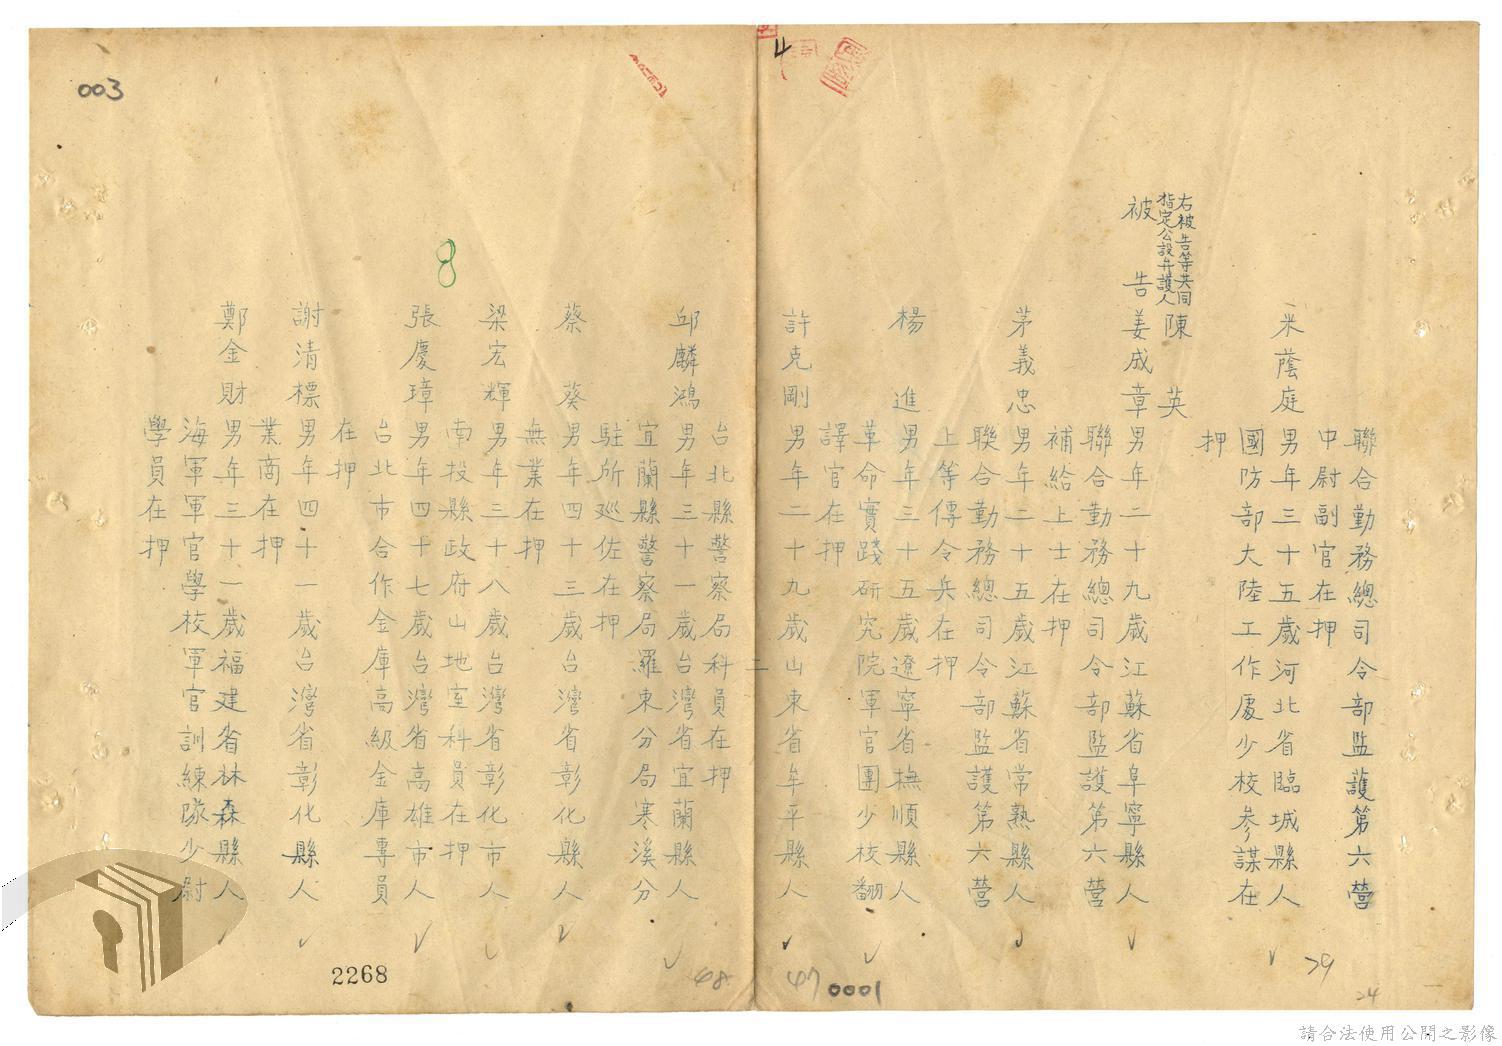 聯合勤務總司令部監護第六營
中尉副官在押
米蔭庭男年三十五歲河北省臨城縣人
國防部大陸工作處少校參謀在
押
右被告等共同
指定公設弁護人陳英
被告姜成章男年二十九歲江蘇省阜寧縣人
聯合勤務總司令部監護第六營
補給上士在押
茅義忠男年二十五歲江蘇省常熟縣人
聯合勤務總司令部監護第六營
上等傳令兵在押
楊進男年三十五歲遼寧省撫順縣人
革命實踐研究院軍官團少校翻
譯官在押
許克剛男年二十九歲山東省牟平縣人
二
台北縣警察局科員在押
邱麟鴻男年三十一歲台灣省宜蘭縣人
宜蘭縣警察局羅東分局寒溪分
駐所巡佐在押
蔡葵男年四十三歲台灣省彰化縣人
無業在押
梁宏輝男年三十八歲台灣省彰化市人
南投縣政府山地室科員在押
張慶璋男年四十七歲台灣省高雄市人
台北市合作金庫高級金庫專員
在押
謝清標男年四十一歲台灣省彰化縣人
業商在押
鄭金財男年三十一歲福建省林森縣人
海軍軍官學校軍官訓練隊少尉
學員在押
003
8
2268
48
47
0001
29
24
請合法使用公開之影像